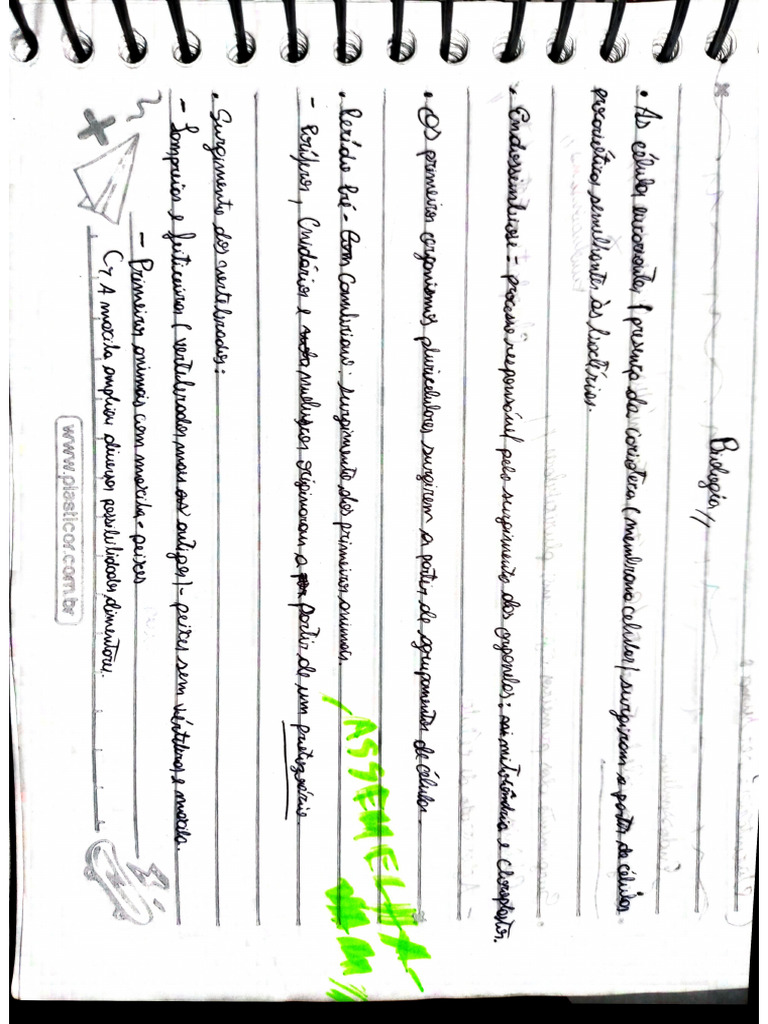 Biologia //
• As células eucariontes (presença da carioteca (membrana celular) surgiram a partir de células
procarióticas semelhantes às bactérias.
• Endossimbiose = processo responsável pelo surgimento das organelas: mitocôndria e cloroplastos.
• Os primeiros organismos pluricelulares surgirem a partir de agrupamentos de células.
• Período Pré - Cambriano: surgimento dos primeiros animais.
- ASSEMELHA-
- Poríferos, Cnidários e moluscos originaram a partir de um protozoário.
• Surgimento dos vertebrados:
- Lampreias e feiticeiras (vertebrados mais antigos) - peixes sem vértebras e maxila.
- Primeiros animais com maxila - peixes
↳ A maxila ampliou diversas possibilidades alimentares.
www.plasticor.com.br